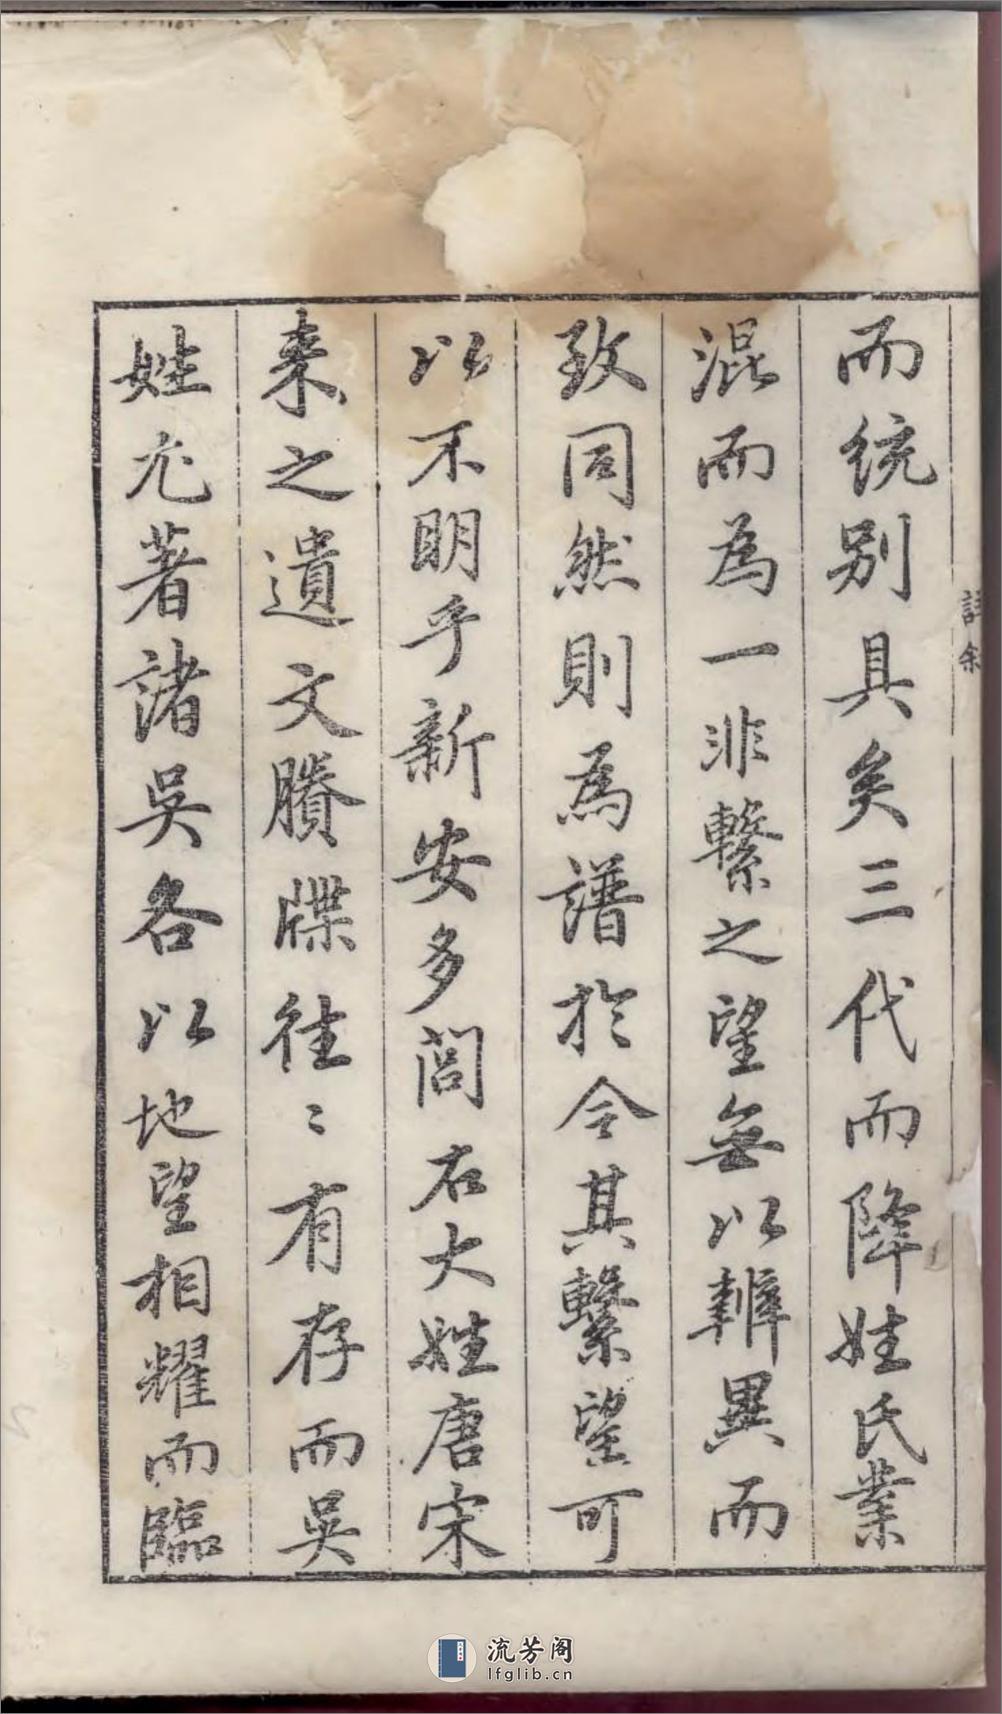 而统别具矣三代而降姓氏業
混而為一非繫之望無以辨異而
致同然則為譜於今其繫望可
以不明乎新安多閥右大姓唐宋
来之遺文賸牒往〻有存而吳
姓尤著諸吳各以地望相耀而臨
流芳阁
lfglib.cn